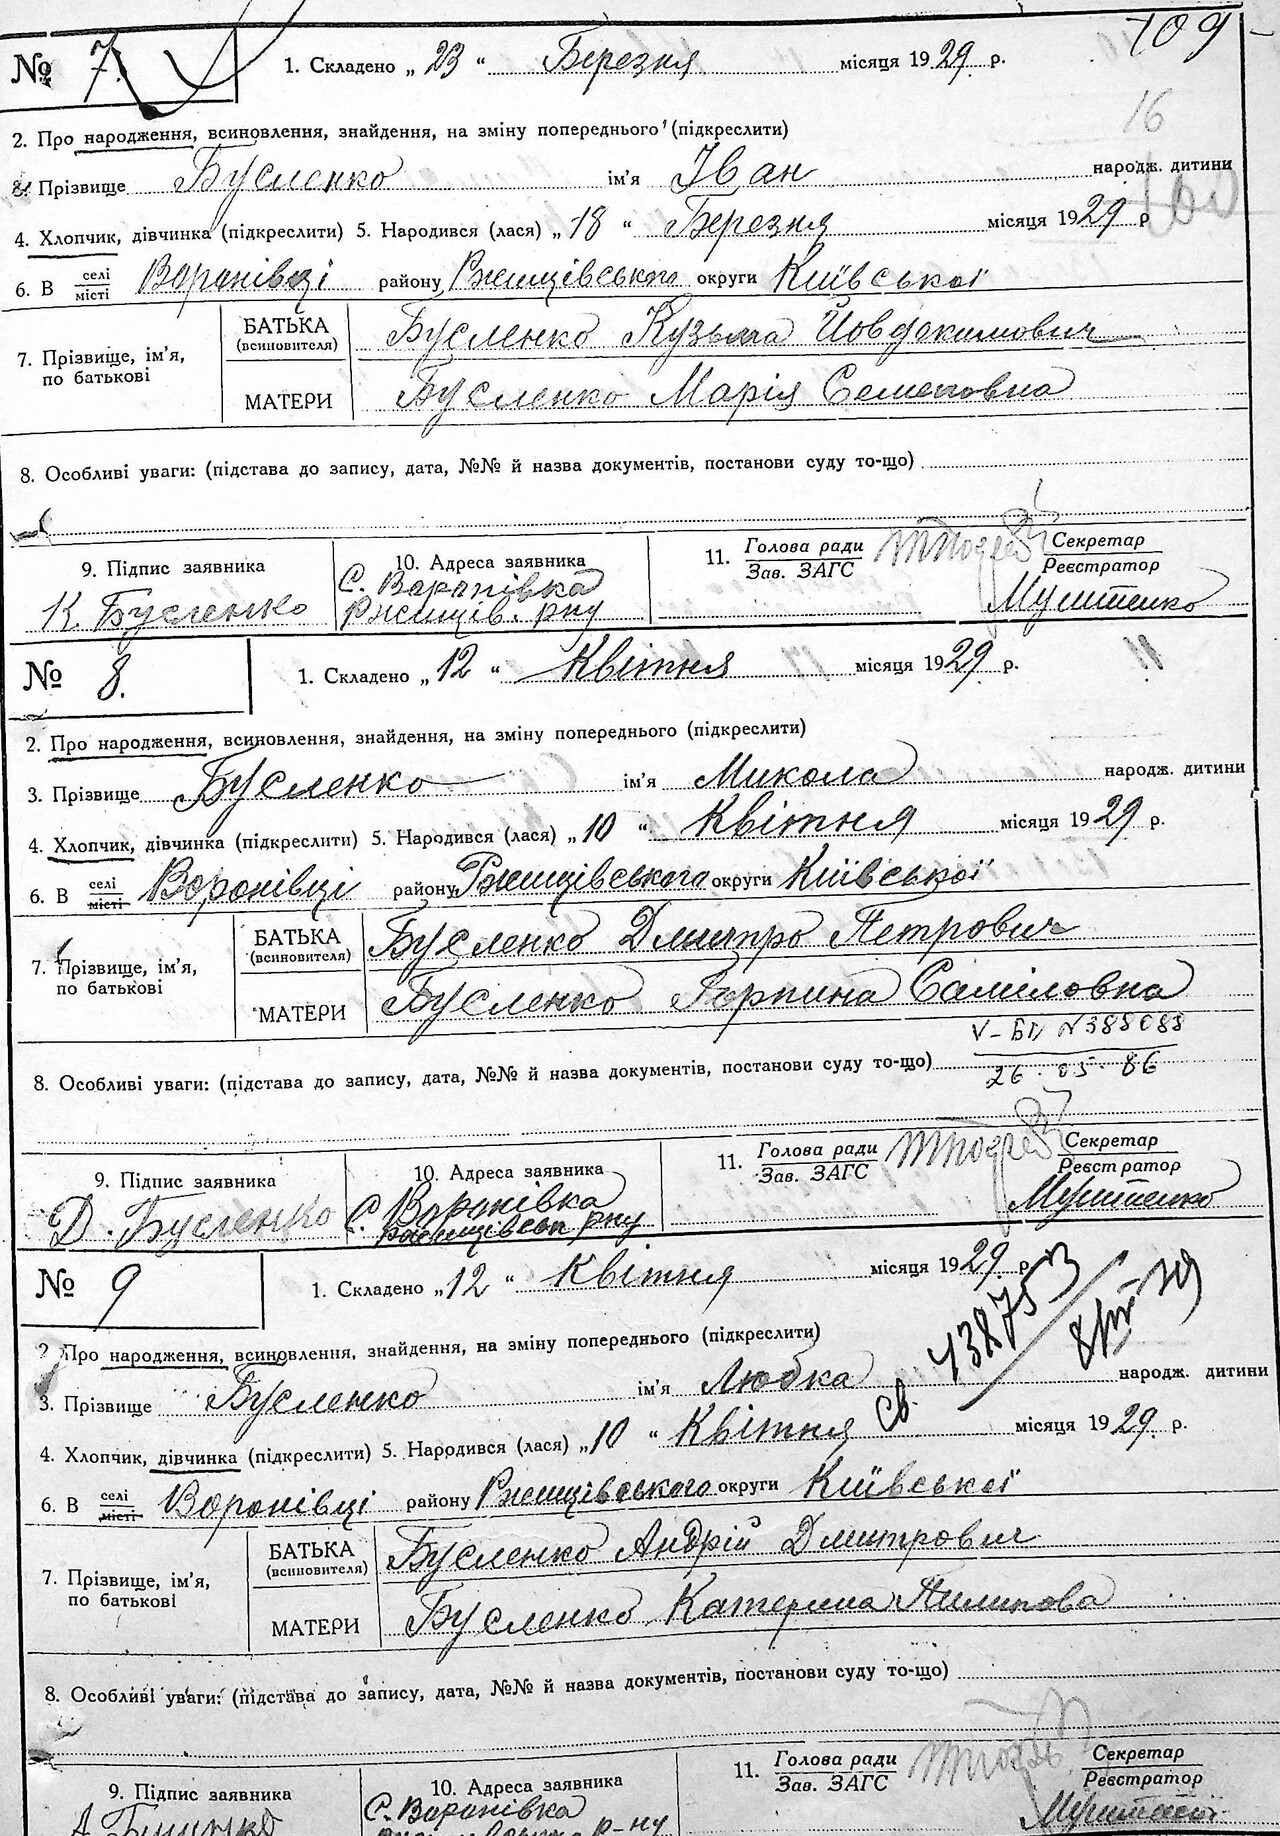 109
№ 7. 1. Складено „ 23 “ Березня місяця 1929 р.
16
2. Про народження, всиновлення, знайдення, на зміну попереднього (підкреслити)
3. Прізвище Бусленко ім'я Іван народж. дитини
4. Хлопчик, дівчинка (підкреслити) 5. Народився (лася) „ 18 “ Березня місяця 1929 р
6. В селі/місті Воронівці району Ржищівського округи Київської
7. Прізвище, ім'я, по батькові
БАТЬКА (всиновителя) Бусленко Кузьма Йовдокимович
МАТЕРИ Бусленко Марія Семеновна
8. Особливі уваги: (підстава до запису, дата, №№ й назва документів, постанови суду то-що)
9. Підпис заявника 10. Адреса заявника 11. Голова ради Зав. ЗАГС Секретар Реєстратор
К. Бусленко С. Воронівка
Ржищів. р-ну
№ 8. 1. Складено „ 12 “ Квітня місяця 1929 р.
2. Про народження, всиновлення, знайдення, на зміну попереднього (підкреслити)
3. Прізвище Бусленко ім'я Микола народж. дитини
4. Хлопчик, дівчинка (підкреслити) 5. Народився (лася) „ 10 “ Квітня місяця 1929 р.
6. В селі/місті Воронівці району Ржищівського округи Київської
7. Прізвище, ім'я, по батькові
БАТЬКА (всиновителя) Бусленко Дмитро Петрович
МАТЕРИ Бусленко Горпина Саміловна
V-БК №388683
8. Особливі уваги: (підстава до запису, дата, №№ й назва документів, постанови суду то-що) 26.05.86
9. Підпис заявника 10. Адреса заявника 11. Голова ради Зав. ЗАГС Секретар Реєстратор
Д. Бусленко С. Воронівка
р-ну
№ 9 1. Складено „ 12 “ Квітня місяця 1929 р.
2. Про народження, всиновлення, знайдення, на зміну попереднього (підкреслити)
3. Прізвище Бусленко ім'я Любка народж. дитини
св. 438753
4. Хлопчик, дівчинка (підкреслити) 5. Народився (лася) „ 10 “ Квітня місяця 1929 р.
6. В селі/місті Воронівці району Ржищівського округи Київської
7. Прізвище, ім'я, по батькові
БАТЬКА (всиновителя) Бусленко Андрій Дмитрович
МАТЕРИ Бусленко Катерина Пилипова
8. Особливі уваги: (підстава до запису, дата, №№ й назва документів, постанови суду то-що)
9. Підпис заявника 10. Адреса заявника 11. Голова ради Зав. ЗАГС Секретар Реєстратор
С. Воронівка
р-ну